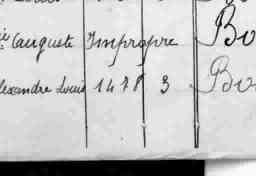 Auguste Impropre Bo
lexandre Louis 1478 3 Bo